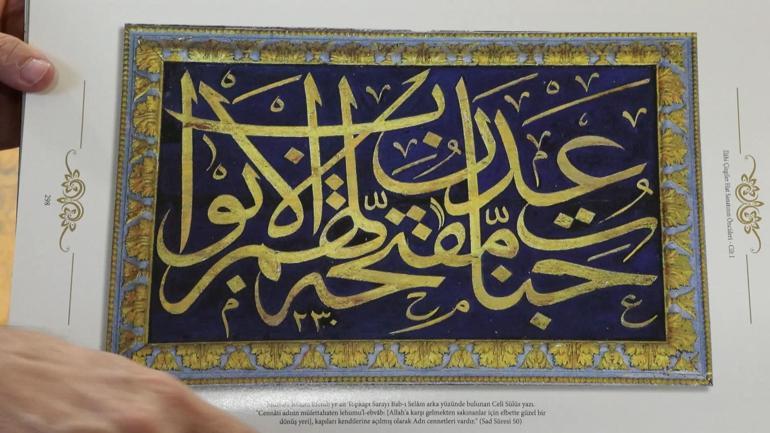 جنات عدن مفتحة لهم الابواب
٢٣٠
298
Efendi'ye ait Topkapı Sarayı Bab-ı Selâm arka yüzünde bulunan Celî Sülüs yazı.
"Cennâti adnin müfettahaten lehumu'l-ebvâb: [Allah'a karşı gelmekten sakınanlar için elbette güzel bir
dönüş yeri], kapıları kendilerine açılmış olarak Adn cennetleri vardır." (Sad Sûresi 50)